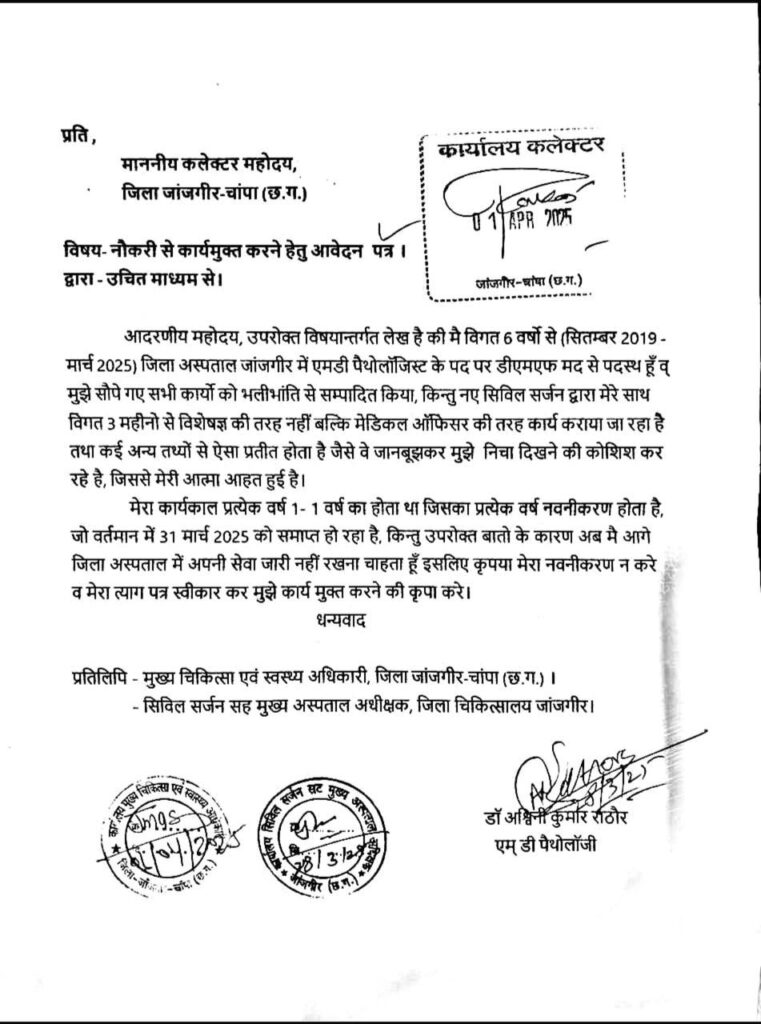 प्रति ,
माननीय कलेक्टर महोदय,
जिला जांजगीर-चांपा (छ.ग.)
कार्यालय कलेक्टर
01 APR 2025
जांजगीर-चांपा (छ.ग.)
विषय- नौकरी से कार्यमुक्त करने हेतु आवेदन पत्र ।
द्वारा - उचित माध्यम से।
आदरणीय महोदय, उपरोक्त विषयान्तर्गत लेख है की मै विगत 6 वर्षो से (सितम्बर 2019 -
मार्च 2025) जिला अस्पताल जांजगीर में एमडी पैथोलॉजिस्ट के पद पर डीएमएफ मद से पदस्थ हूँ व्
मुझे सौपे गए सभी कार्यो को भलीभांति से सम्पादित किया, किन्तु नए सिविल सर्जन द्वारा मेरे साथ
विगत 3 महीनो से विशेषज्ञ की तरह नहीं बल्कि मेडिकल ऑफिसर की तरह कार्य कराया जा रहा है
तथा कई अन्य तथ्यों से ऐसा प्रतीत होता है जैसे वे जानबूझकर मुझे निचा दिखने की कोशिश कर
रहे है, जिससे मेरी आत्मा आहत हुई है।
मेरा कार्यकाल प्रत्येक वर्ष 1- 1 वर्ष का होता था जिसका प्रत्येक वर्ष नवनीकरण होता है,
जो वर्तमान में 31 मार्च 2025 को समाप्त हो रहा है, किन्तु उपरोक्त बातो के कारण अब मै आगे
जिला अस्पताल में अपनी सेवा जारी नहीं रखना चाहता हूँ इसलिए कृपया मेरा नवनीकरण न करे
व मेरा त्याग पत्र स्वीकार कर मुझे कार्य मुक्त करने की कृपा करे।
धन्यवाद
प्रतिलिपि - मुख्य चिकित्सा एवं स्वस्थ्य अधिकारी, जिला जांजगीर-चांपा (छ.ग.) ।
- सिविल सर्जन सह मुख्य अस्पताल अधीक्षक, जिला चिकित्सालय जांजगीर।
28/3/25
डॉ अश्विनी कुमार राठौर
एम् डी पैथोलॉजी
मुख्य चिकित्सा एवं स्वास्थ्य
04/2025
सिविल सर्जन सह मुख्य अस्पताल
28/3/25
जांजगीर (छ.ग.)